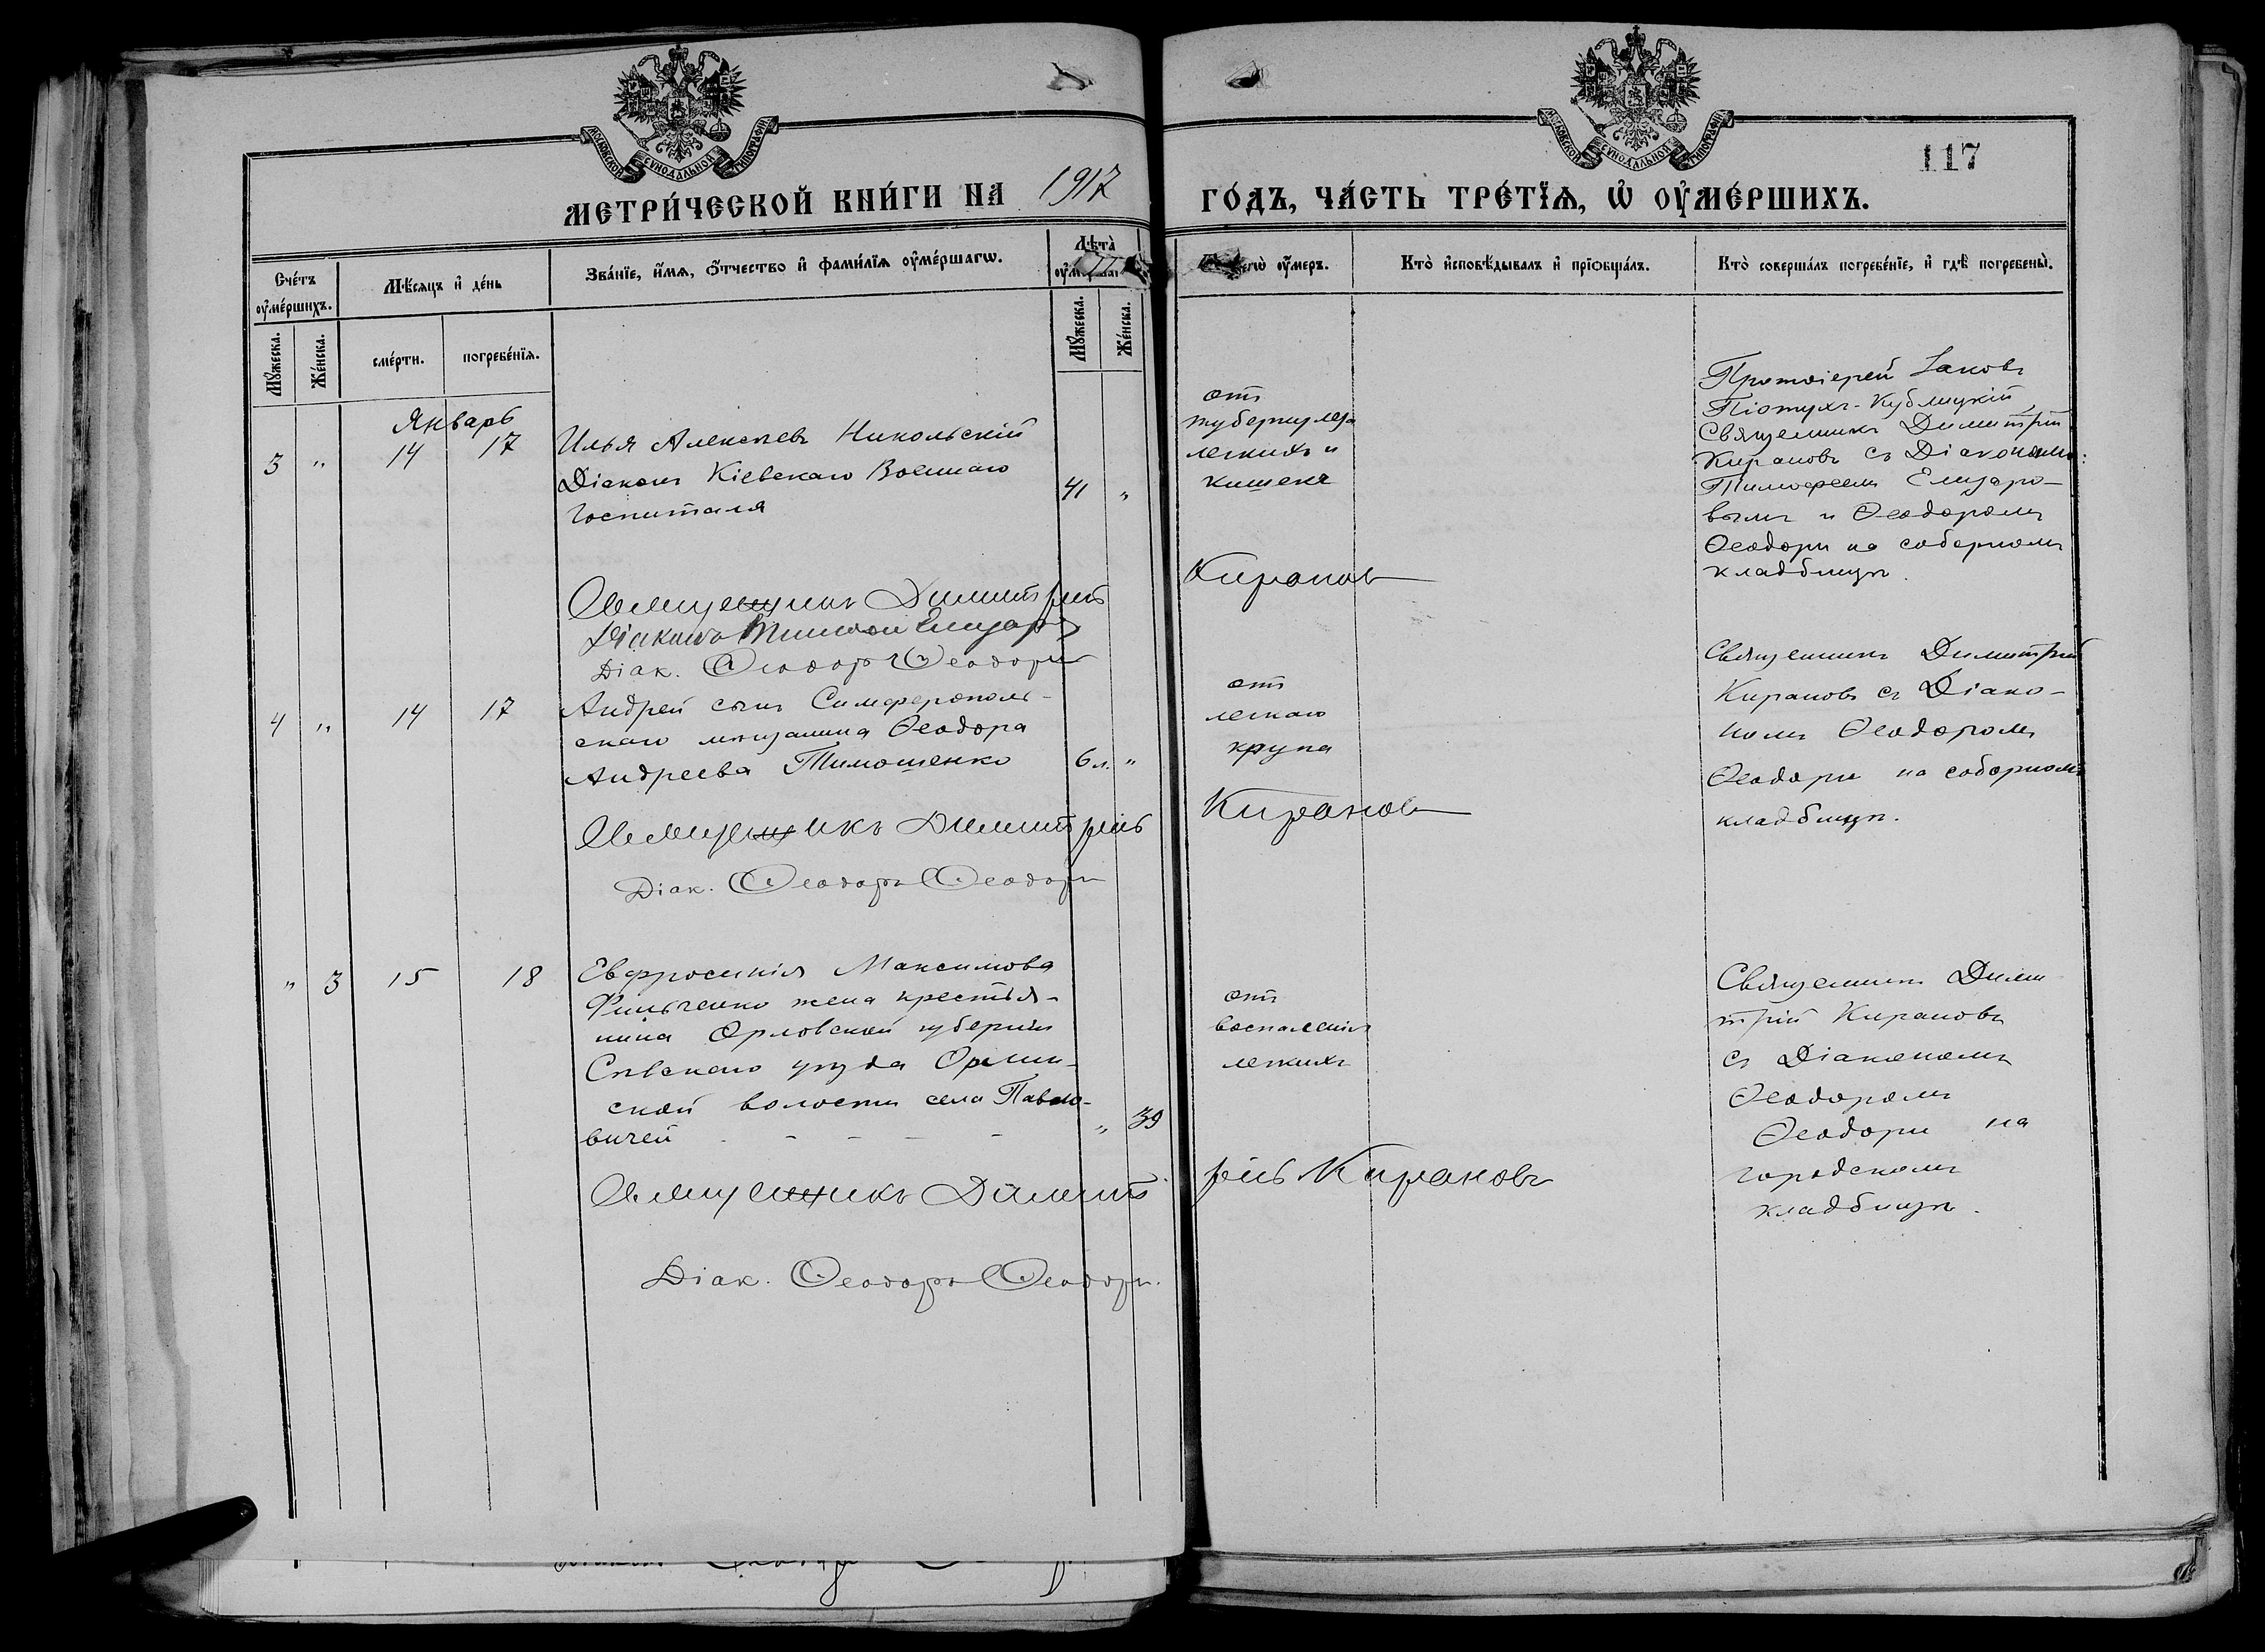 МОСКОВСКОЙ СѴНОДАЛЬНОЙ ТИПОГРАФІИ
МОСКОВСКОЙ СѴНОДАЛЬНОЙ ТИПОГРАФІИ
117
МЕТРИ́ЧЕСКОЙ КНИ́ГИ НА 1917 ГО́ДЪ, ЧА́СТЬ ТРЕ́ТЇѦ, Ѡ҆ ОУ҆МЕ́РШИХЪ.
Сче́тъ оу҆ме́ршихъ.
Мѣ́сяцъ и҆ де́нь
Зва́нїе, и҆́мѧ, ѻ҆́тчество и҆ фами́лїѧ оу҆ме́ршагѡ.
Лѣта̀
Ѿ чегѡ̀ оу҆́меръ.
Кто̀ и҆сповѣ́дывалъ и҆ прїѻбща́лъ.
Кто̀ соверша́лъ погребе́нїе, и҆ гдѣ̀ погребены̀.
Му́жеска.
Же́нска.
сме́рти.
погребе́нїѧ.
Му́жеска.
Же́нска.
Январь
3 " 14 17
Илья Алексѣевъ Никольскій
Діаконъ Кіевскаго Военнаго
Госпиталя
41 "
отъ
туберкулеза
легкихъ и
кишекъ
Протоіерей Іаковъ
Піотухъ-Кублицкій
Священникъ Димитрій
Кирановъ съ Діаконами:
Тимофеемъ Елизаро-
вымъ и Ѳеодоромъ
Ѳеодори на соборномъ
кладбищѣ.
Священникъ Димитрій Кирановъ
Діаконъ Тимофей Елизаров
Діак. Ѳеодоръ Ѳеодори
4 " 14 17
Андрей сынъ Симферополь-
скаго мѣщанина Ѳеодора
Андреева Тимошенко
6 л. "
отъ
легкаго
крупа
Священникъ Димитрій
Кирановъ съ Діако-
номъ Ѳеодоромъ
Ѳеодори на соборномъ
кладбищѣ.
Священникъ Димитрій Кирановъ
Діак. Ѳеодоръ Ѳеодори
" 3 15 18
Евфросинія Максимова
Фильченко жена крестья-
нина Орловской губерніи
Сѣвскаго уѣзда
ской волости села Павло-
вичей - - - -
" 39
отъ
воспаленія
легкихъ
Священникъ Дими
трій Кирановъ
съ Діакономъ
Ѳеодоромъ
Ѳеодори на
городскомъ
кладбищѣ.
Священникъ Димитрій Кирановъ
Діак. Ѳеодоръ Ѳеодори.